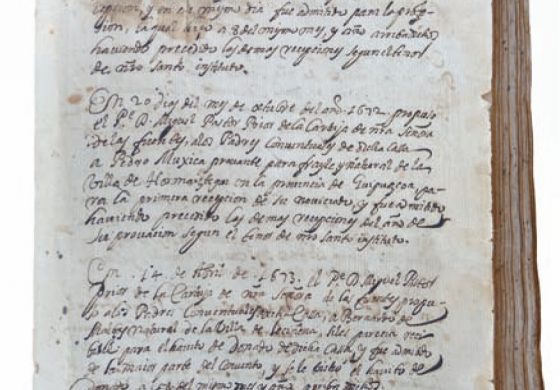 cepcion, y en el mismo dia fue admitido para la profe-
sion, la qual hizo a 8 del mismo mes, y año
haviendo precedido las demas recepciones segun el tenor
de nrõ santo instituto.
En 20 dias del mes de octubre del año 1672. propuso
el Pe. D. Miguel Pastor Prior de la Cartuja de nrã Señora
de las fuentes, a los Padres Conventuales de dicha Casa
a Pedro Muxica para frayle, y natural de la
Villa de en la provincia de Guipuzcoa, pa-
ra la primera recepcion de su noviciado y fue admitido
haviendo precedido las demas recepciones del año de
su provacion segun el tenor de nrõ santo instituto.
En 14 de Abril de 1673. el Pe. D. Miguel Pastor
Prior de la Cartuja de nrã Señora de las fuentes propu-
so a los Padres Conventuales de dicha Casa, a Bernardo de
natural de la Villa de si les parecia reci-
bible para el havito de Donado de dicha Casa, y fue admitido
de la maior parte del Convento, y se le el havito de
Donado a del mismo mes y año